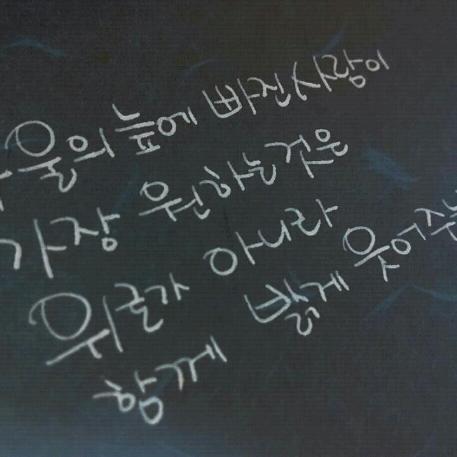 우울의 늪에 빠진 사람이
가장 원하는것은
위로가 아니라
함께 밝게 웃어주는